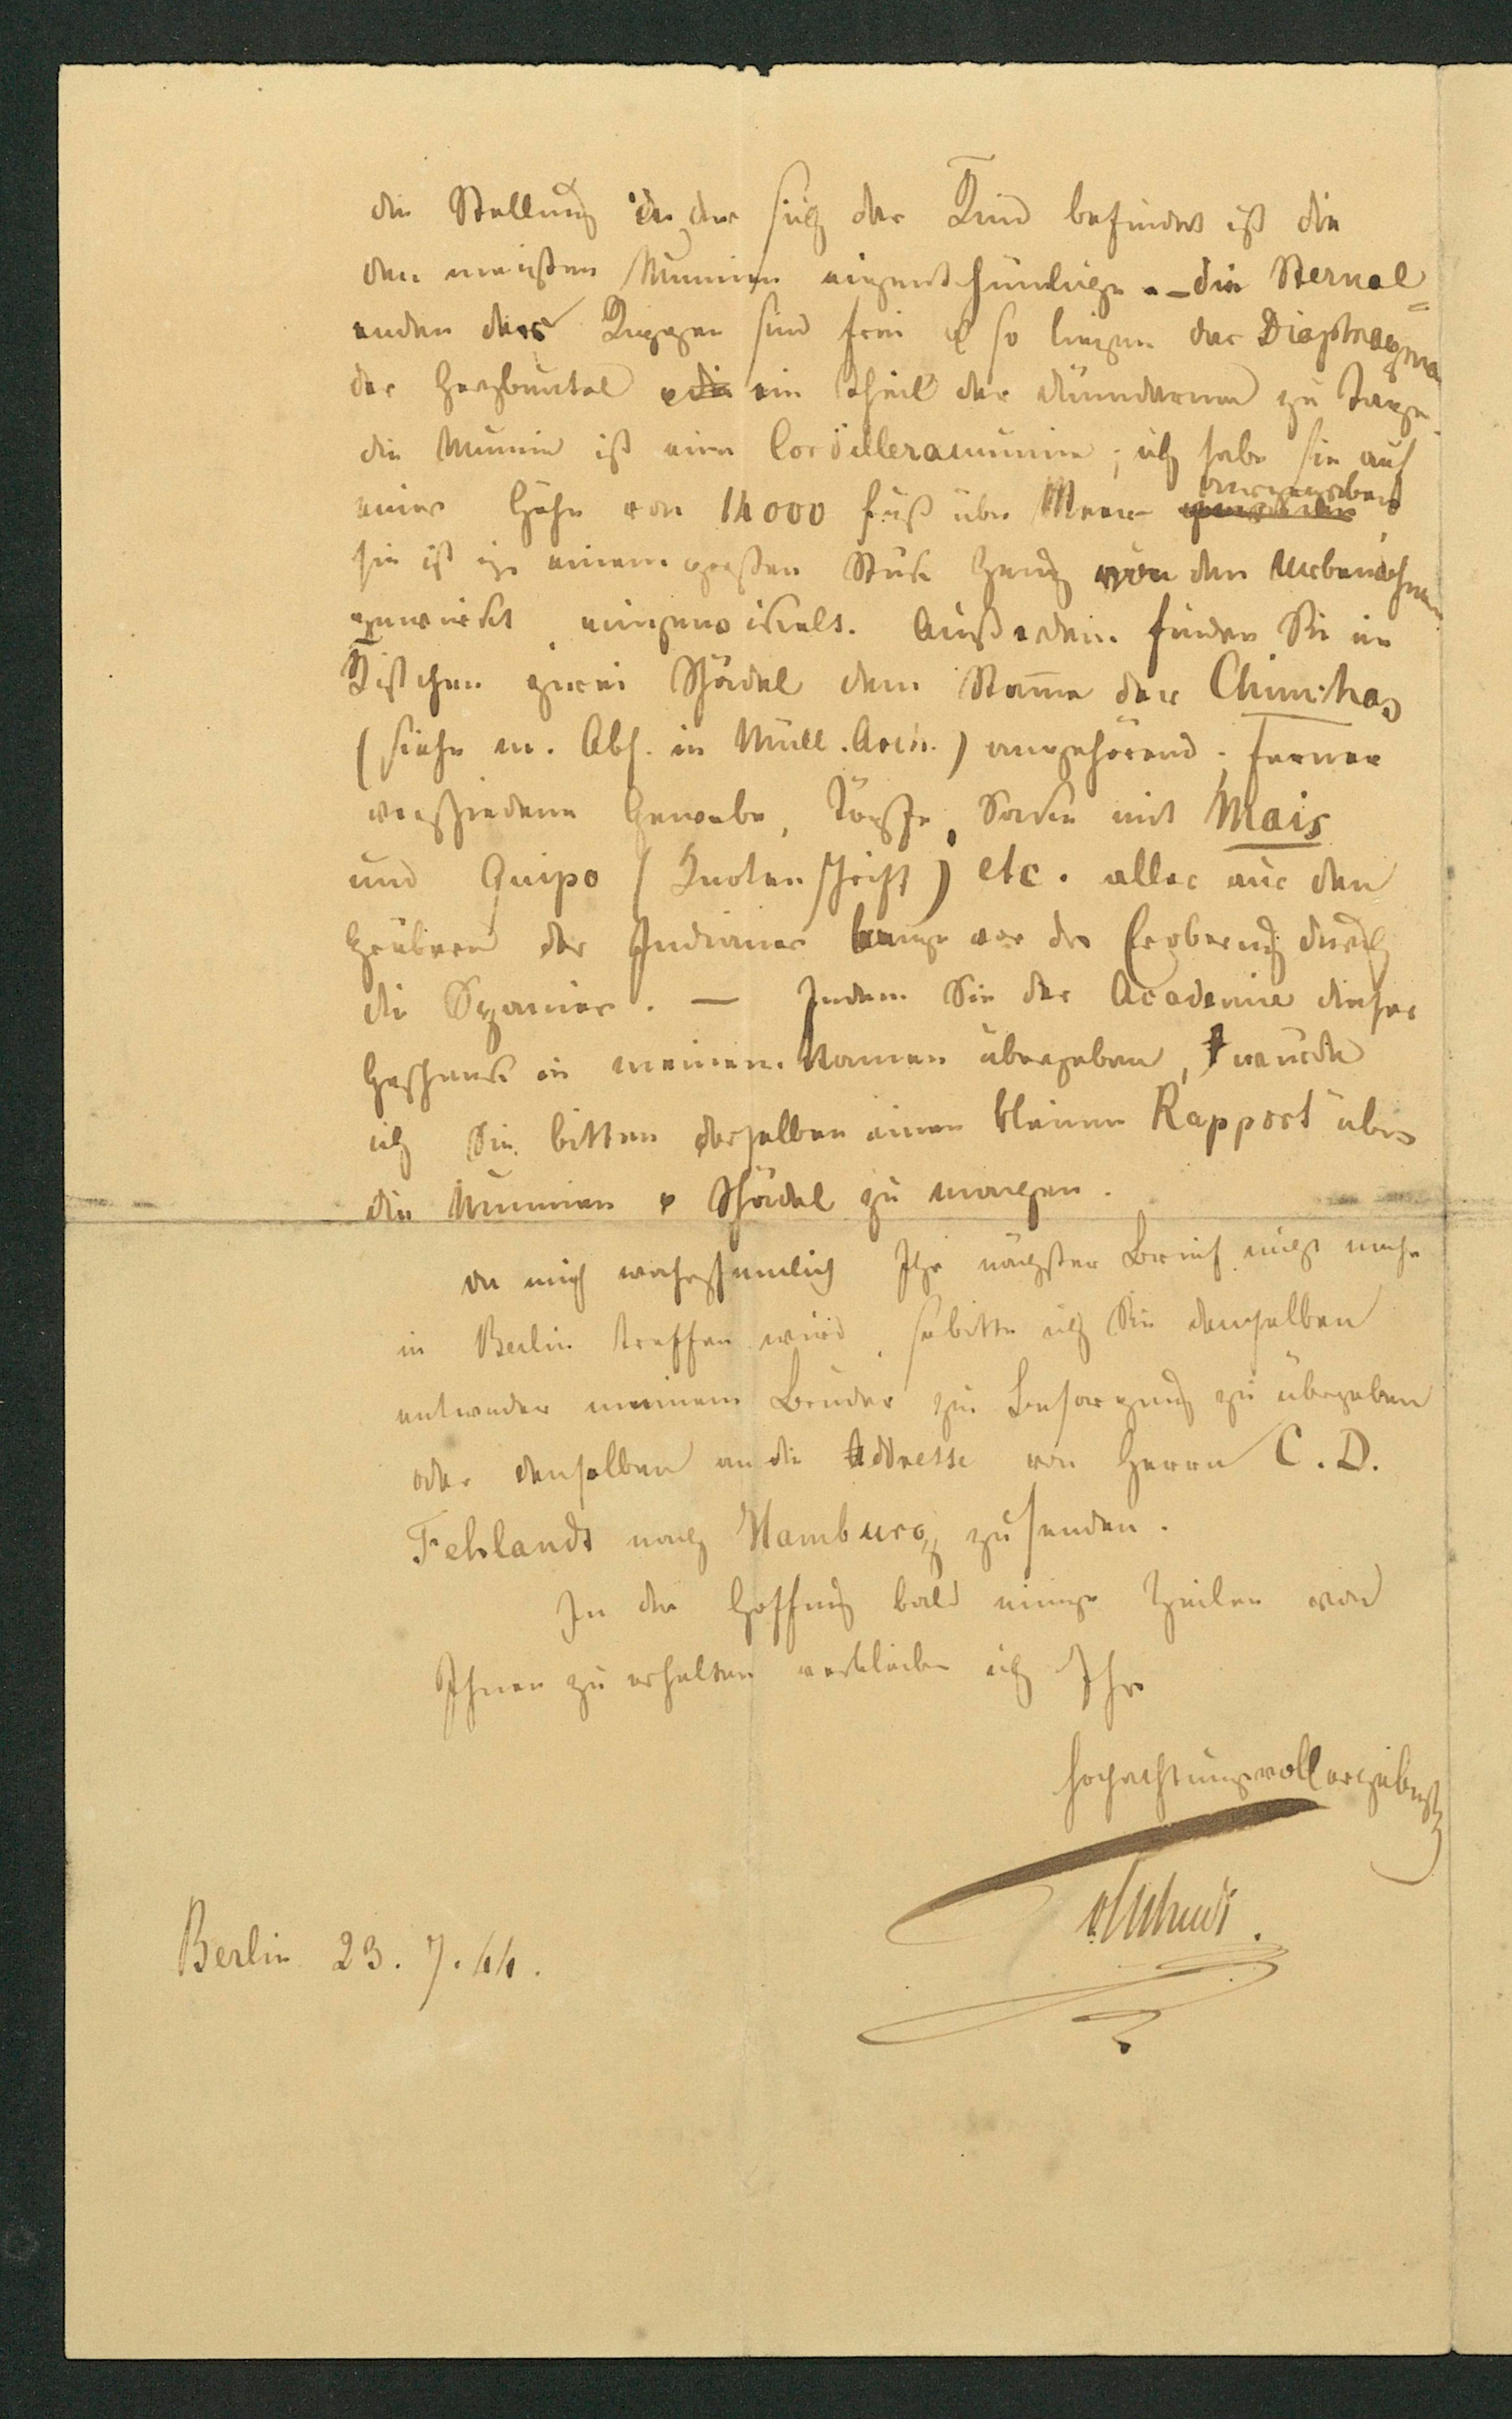 die Stellung in der sich das Kind befindet ist die
den meisten Mumien eigenthümliche. – die Sternal=
enden der Rippen sind frei & so liegen das Diaphragma
der Herzbeutel & ein Theil der dünndärme zu Tage.
die Mumie ist eine Cordilleramumie; ich habe sie auf
einer Höhe von 14000 Fuß über Meer ausgegraben
sie ist in einem großen Stük Zeug von den Urbewohnern
gewirkt eingewikelt. Außerdem finden Sie im
Kistchen zwei Schädel dem Stamme der Chinchas
(siehe m. Abh. in Müll. Arch.) angehörend; ferner
verschiedene Gewebe, Töpfe, Säcke mit Mais
und Quipo (Knotenschrift) etc. alles aus den
Gräbern der Indianer lange vor der Eroberung durch
die Spanier. — Indem Sie der Academie dieses
Geschenk in meinem Namen übergeben, würde
ich Sie bitten derselben einen kleinen Rapport über
die Mumien & Schädel zu machen.
da mich wahrscheinlich Ihr nächster Brief nicht mehr
in Berlin treffen wird, so bitte ich Sie denselben
entweder meinem Bruder zur Besorgung zu übergeben
oder denselben an die Addresse von Herrn C. D.
Fehlandt nach Hamburg zu senden.
In der Hoffnung bald einige Zeilen von
Ihnen zu erhalten verbleibe ich Ihr
hochachtungsvoll ergebenst
v Tschudi.
Berlin 23. 7. 44.